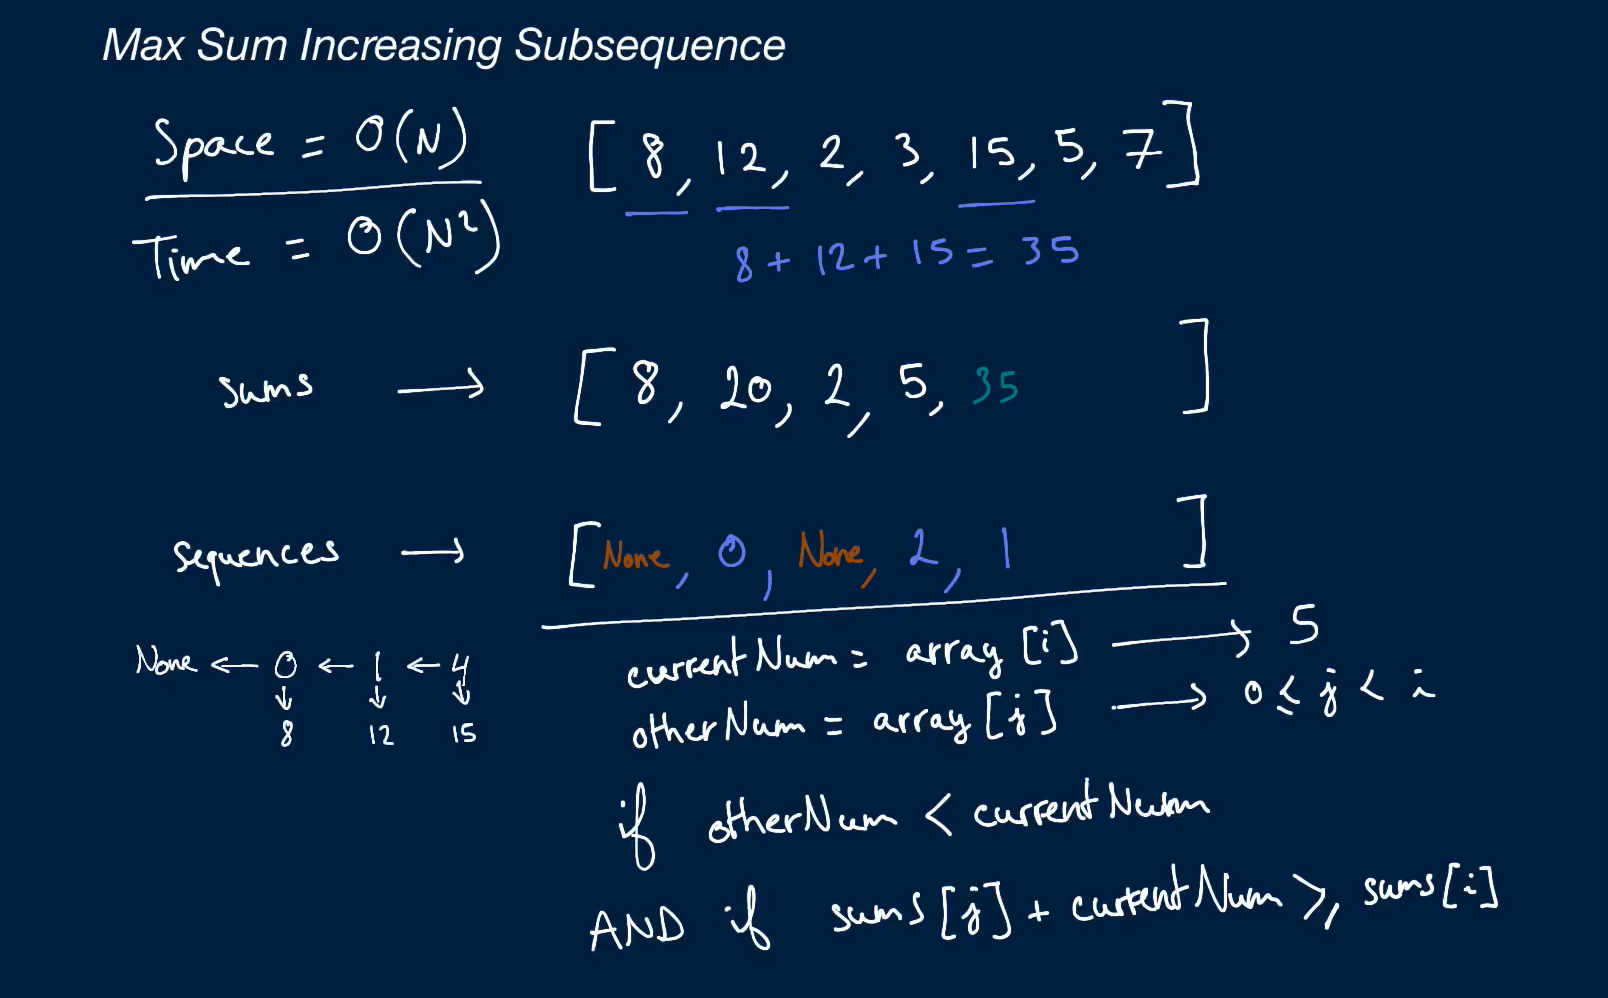 Max Sum Increasing Subsequence
Space = O(N)
Time = O(N²)
[ 8, 12, 2, 3, 15, 5, 7 ]
8 + 12 + 15 = 35
sums → [ 8, 20, 2, 5, 35 ]
sequences → [ None, 0, None, 2, 1 ]
None ← 0 ← 1 ← 4
↓ ↓ ↓
8 12 15
currentNum = array [i] → 5
otherNum = array [j] → 0 ≤ j < i
if otherNum < currentNum
AND if sums [j] + currentNum >, sums [i]